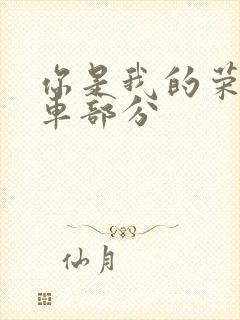 你是我的荣
车部分
仙月